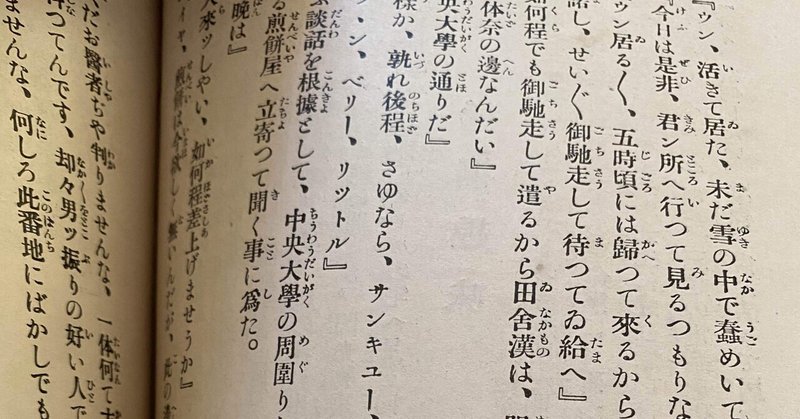 『ウン、活きて居た、未だ雪の中で蠢めいて
今日は是非、君ン所へ行つて見るつもりな
ウン居る〱、五時頃には歸つて來るから
諾し、せい〲御馳走して待つてゐ給へ』
如何程でも御馳走して遣るから田舍漢は、
体奈の邊なんだい』
央大學の通りだ』
樣か、孰れ後程、さゆなら、サンキユー、
ン、ベリー、リツトル』
談話を根據として、中央大學の周圍り
る煎餅屋へ立寄つて聞く事に爲た。
晩は』
來ツしやい、如何程差上げませうか』
イヤ、煎餅は今欲しく無いんだが、此の
だお醫者ぢや判りませんな、一体何て
つてんです、却々男ツ振りの好い人で
ませんな、何しろ此番地にばかしでも